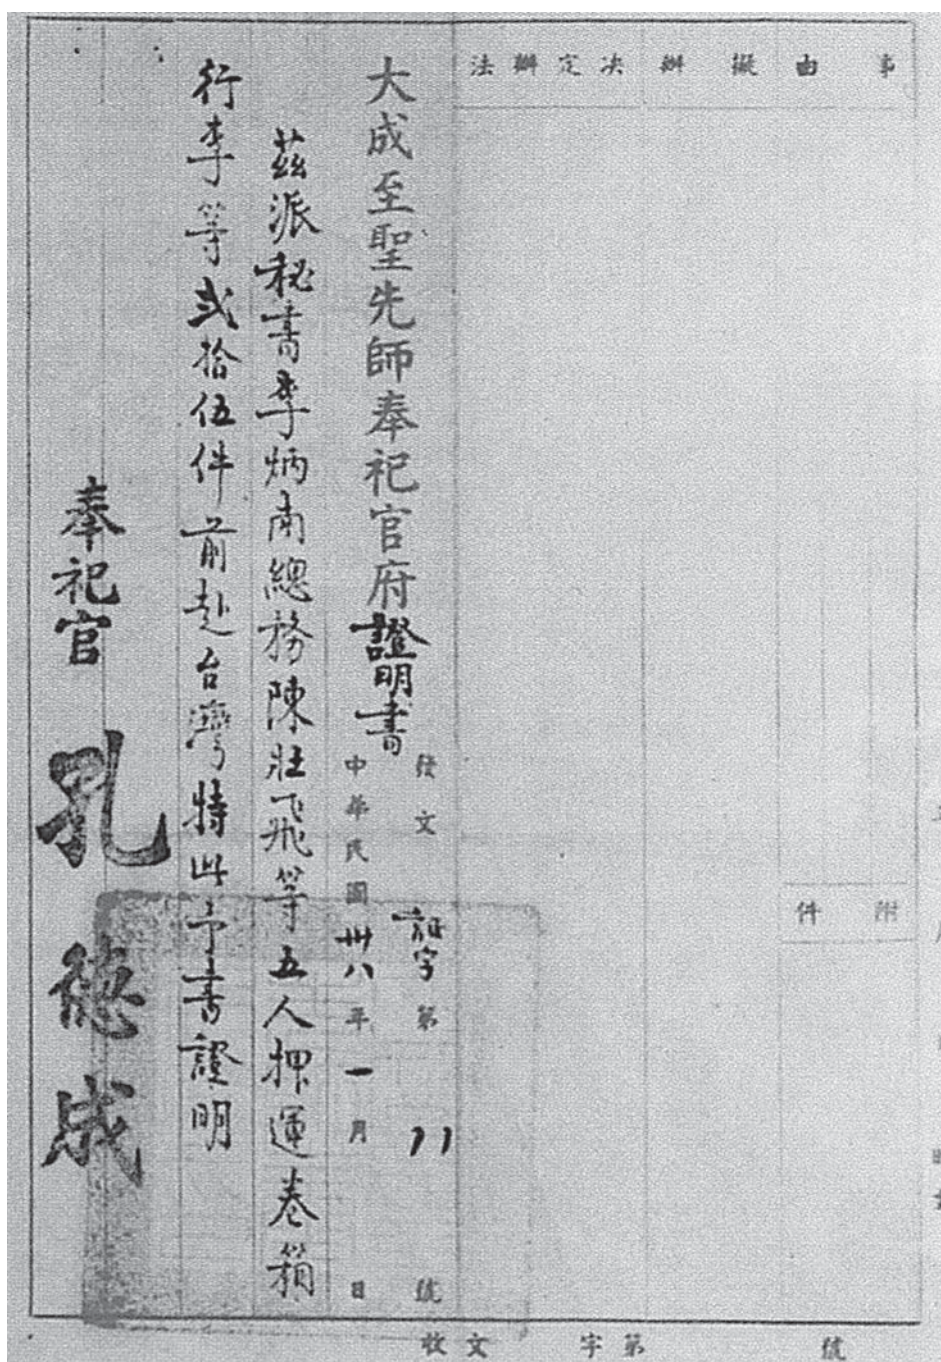 事由
擬辦
決定辦法
附件
大成至聖先師奉祀官府證明書
發文 証字第 11 號
中華民國卅八年一月 日
茲派秘書李炳南總務陳壯飛等五人押運卷箱
行李等弍拾伍件前赴台灣特此予書證明
奉祀官 孔德成
收文 字第 號